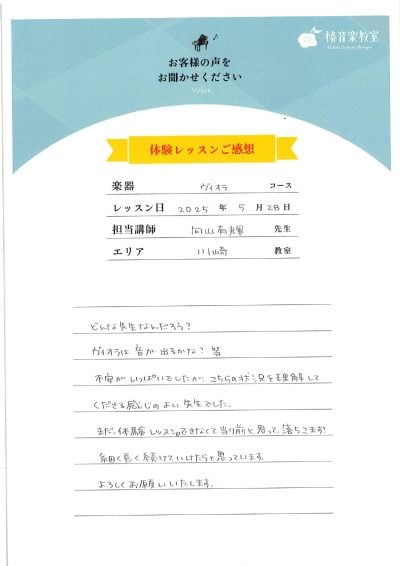 椿音楽教室
お客様の声を
お聞かせください
Voice
体験レッスンご感想
楽器 ヴィオラ コース
レッスン日 2025 年 5 月 28 日
担当講師 向山 先生
エリア 川崎 教室
どんな先生なんだろう?
ヴィオラは音が出るかな? 等
不安がいっぱいでしたが、こちらの状況を理解して
くださる感じのよい先生でした。
まだ、体験レッスン。できなくて当り前と思って、落ちこまず
細く長く続けていけたらと思っています。
よろしくお願いいたします。